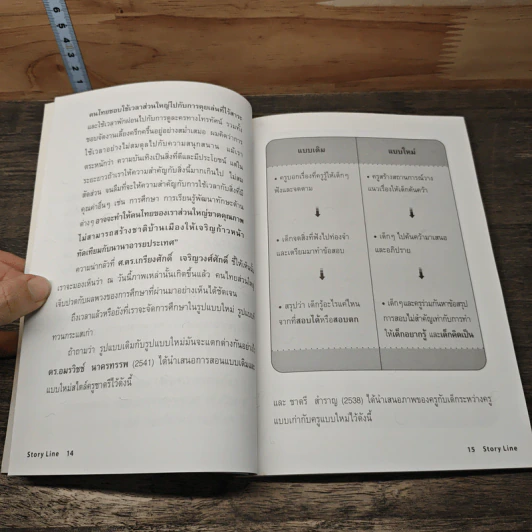 คนไทยชอบใช้เวลาส่วนใหญ่ไปกับการคุยเล่นที่ไร้สาระ
และใช้เวลาพักผ่อนไปกับการดูละครทางโทรทัศน์ รวมทั้ง
ชอบจัดงานเลี้ยงครึกครื้นอยู่อย่างสม่ำเสมอ ผมคิดว่าการ
ใช้เวลาอย่างไม่สมดุลไปกับความสนุกสนาน แม้เรา
ตระหนักว่า ความบันเทิงเป็นสิ่งที่ดีและมีประโยชน์ แต่ใน
ระยะยาวถ้าเราให้ความสำคัญกับสิ่งนี้มากเกินไป ไม่สม
สัดส่วน จนลืมที่จะให้ความสำคัญกับการใช้เวลากับสิ่งที่มี
คุณค่าอื่นๆ เช่น การศึกษา การเรียนรู้พัฒนาทักษะด้าน
ต่างๆ อาจจะทำให้คนไทยของเราส่วนใหญ่ขาดคุณภาพ
ไม่สามารถสร้างชาติบ้านเมืองให้เจริญก้าวหน้า
ทัดเทียมกับนานาอารยประเทศ"
ความน่ากลัวที่ ศ.ดร.เกรียงศักดิ์ เจริญวงศ์ศักดิ์ ชี้ให้เห็นนั้น
เราจะมองเห็นว่า ณ วันนี้ภาพเหล่านั้นเกิดขึ้นแล้ว คนไทยส่วนใหญ่
เจ็บปวดกับผลพวงของการศึกษาที่ผ่านมาอย่างเห็นได้ชัดเจน
ถึงเวลาแล้วหรือยังที่เราจะจัดการศึกษาในรูปแบบใหม่ รูปแบบที่
ทวนกระแสเก่า
ถ้าถามว่า รูปแบบเดิมกับรูปแบบใหม่มันจะแตกต่างกันอย่างไร
ดร.อมรวิชช์ นาครทรรพ (2541) ได้นำเสนอการสอนแบบเดิมและ
แบบใหม่สไตล์ครูชาตรีไว้ดังนี้
Story Line 14
แบบเดิม
• ครูบอกเรื่องที่ครูรู้ให้เด็กๆ
ฟังและจดตาม
• เด็กจดสิ่งที่ฟังไปท่องจำ
และเตรียมมาทำข้อสอบ
• สรุปว่า เด็กรู้อะไรแค่ไหน
จากที่สอบได้หรือสอบตก
แบบใหม่
• ครูสร้างสถานการณ์วาง
แนวเรื่องให้เด็กค้นคว้า
• เด็กๆ ไปค้นคว้ามาเสนอ
และอภิปราย
• เด็กๆและครูร่วมกันหาข้อสรุป
การสอบไม่สำคัญเท่ากับการทำ
ให้เด็กอยากรู้ และเด็กคิดเป็น
และ ชาตรี สำราญ (2538) ได้นำเสนอภาพของครูกับเด็กระหว่างครู
แบบเก่ากับครูแบบใหม่ไว้ดังนี้
15 Story Line
6
5
4
3
2
1